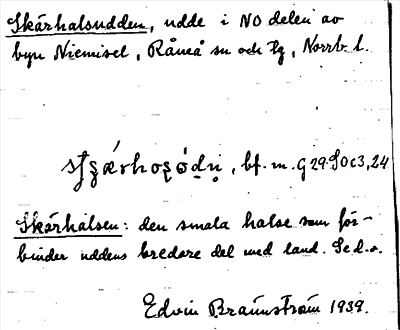 Skärhalsudden, udde i NO delen av
byn Niemisel, Råneå sn och tg, Norrb. l.
bf. m. G 29. S O c 3, 24
Skärhalsen: den smala halse som för-
binder uddens bredare del med land. Se d. o.
Edvin Brännström 1939.